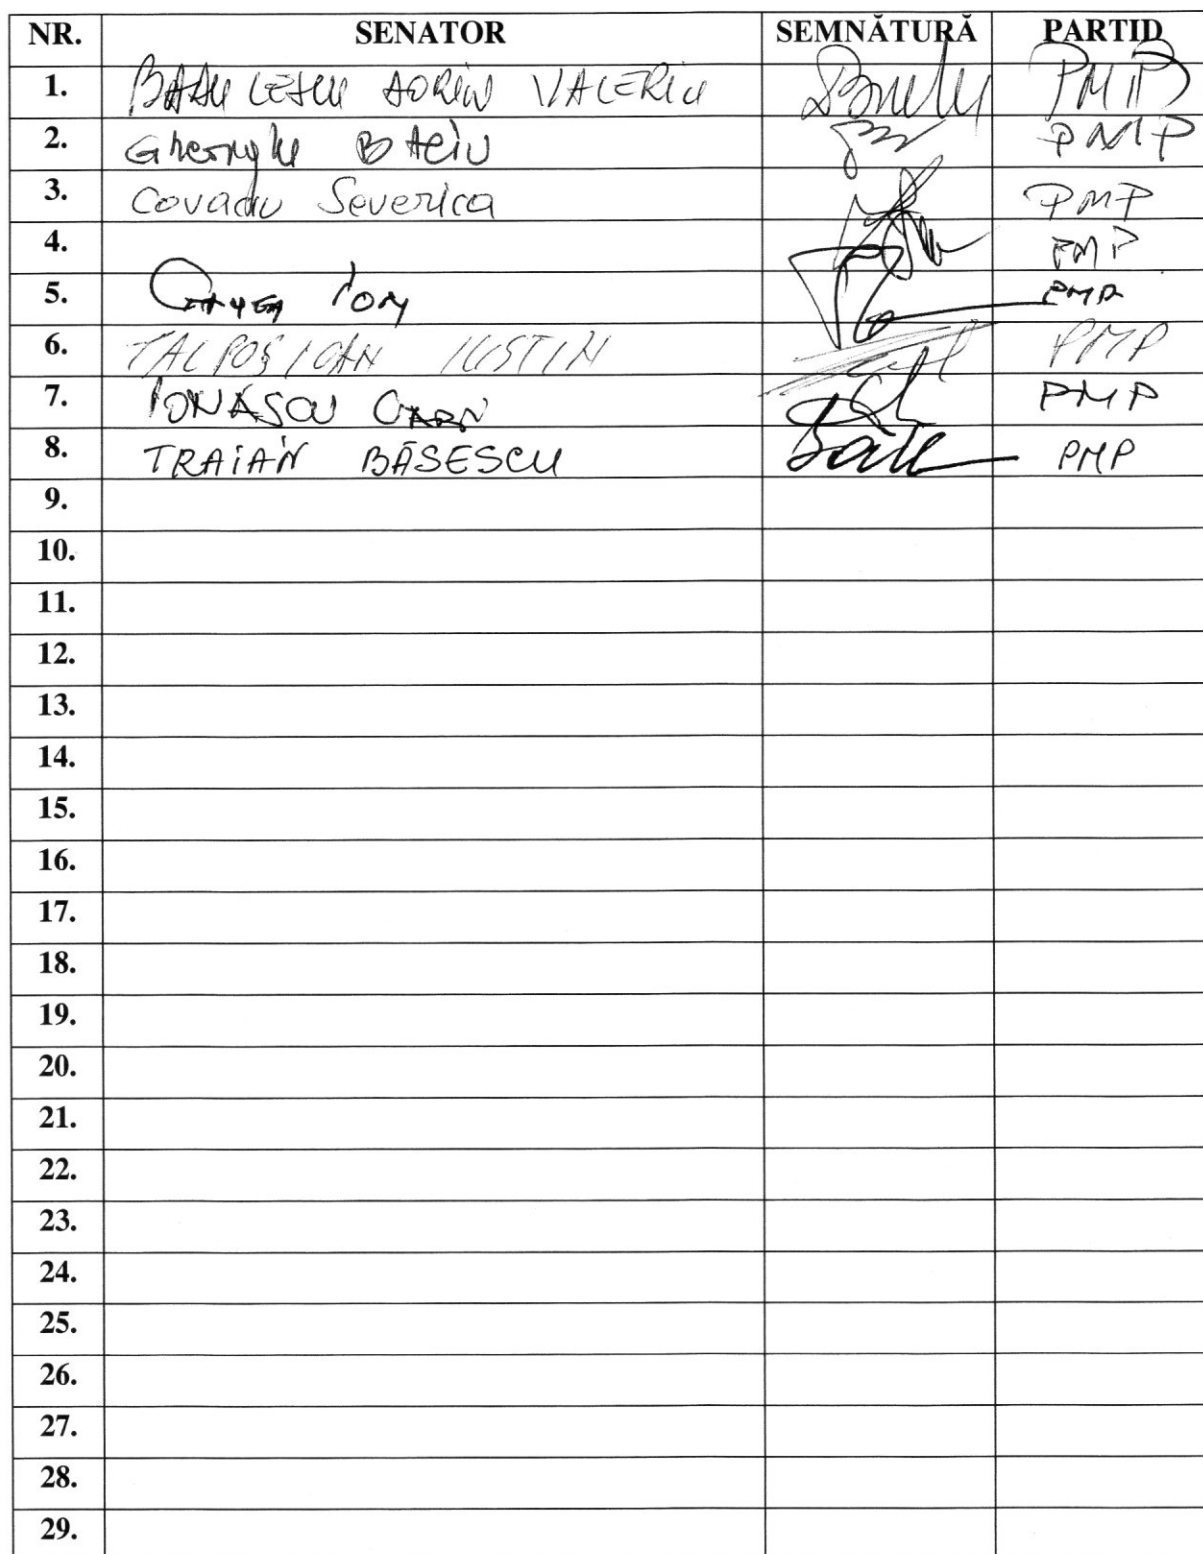 NR. SENATOR SEMNĂTURĂ PARTID
1. VALERIU PMP
2. Gheorghe BACIU PMP
3. Covaciu Severica PMP
4. PMP
5. PMP
6. TALPOȘ IOAN IUSTIN PMP
7. IONAȘCU PMP
8. TRAIAN BĂSESCU PMP
9.
10.
11.
12.
13.
14.
15.
16.
17.
18.
19.
20.
21.
22.
23.
24.
25.
26.
27.
28.
29.